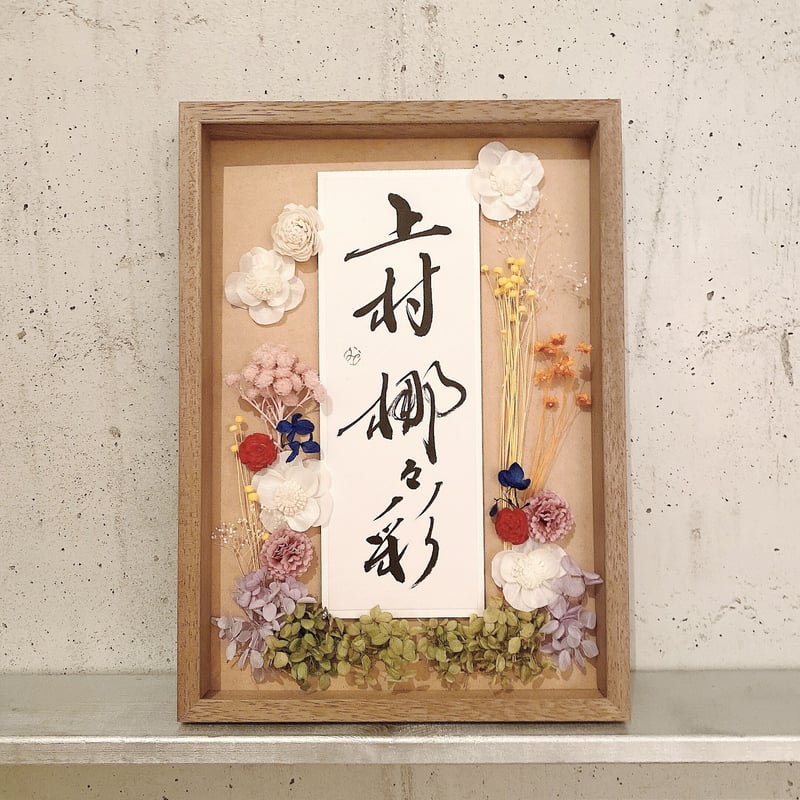 上村 梛々彩